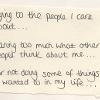 ying to the people I care
bout...
aring too much what other
people think about me....
r not doing some of things
wanted to in my life